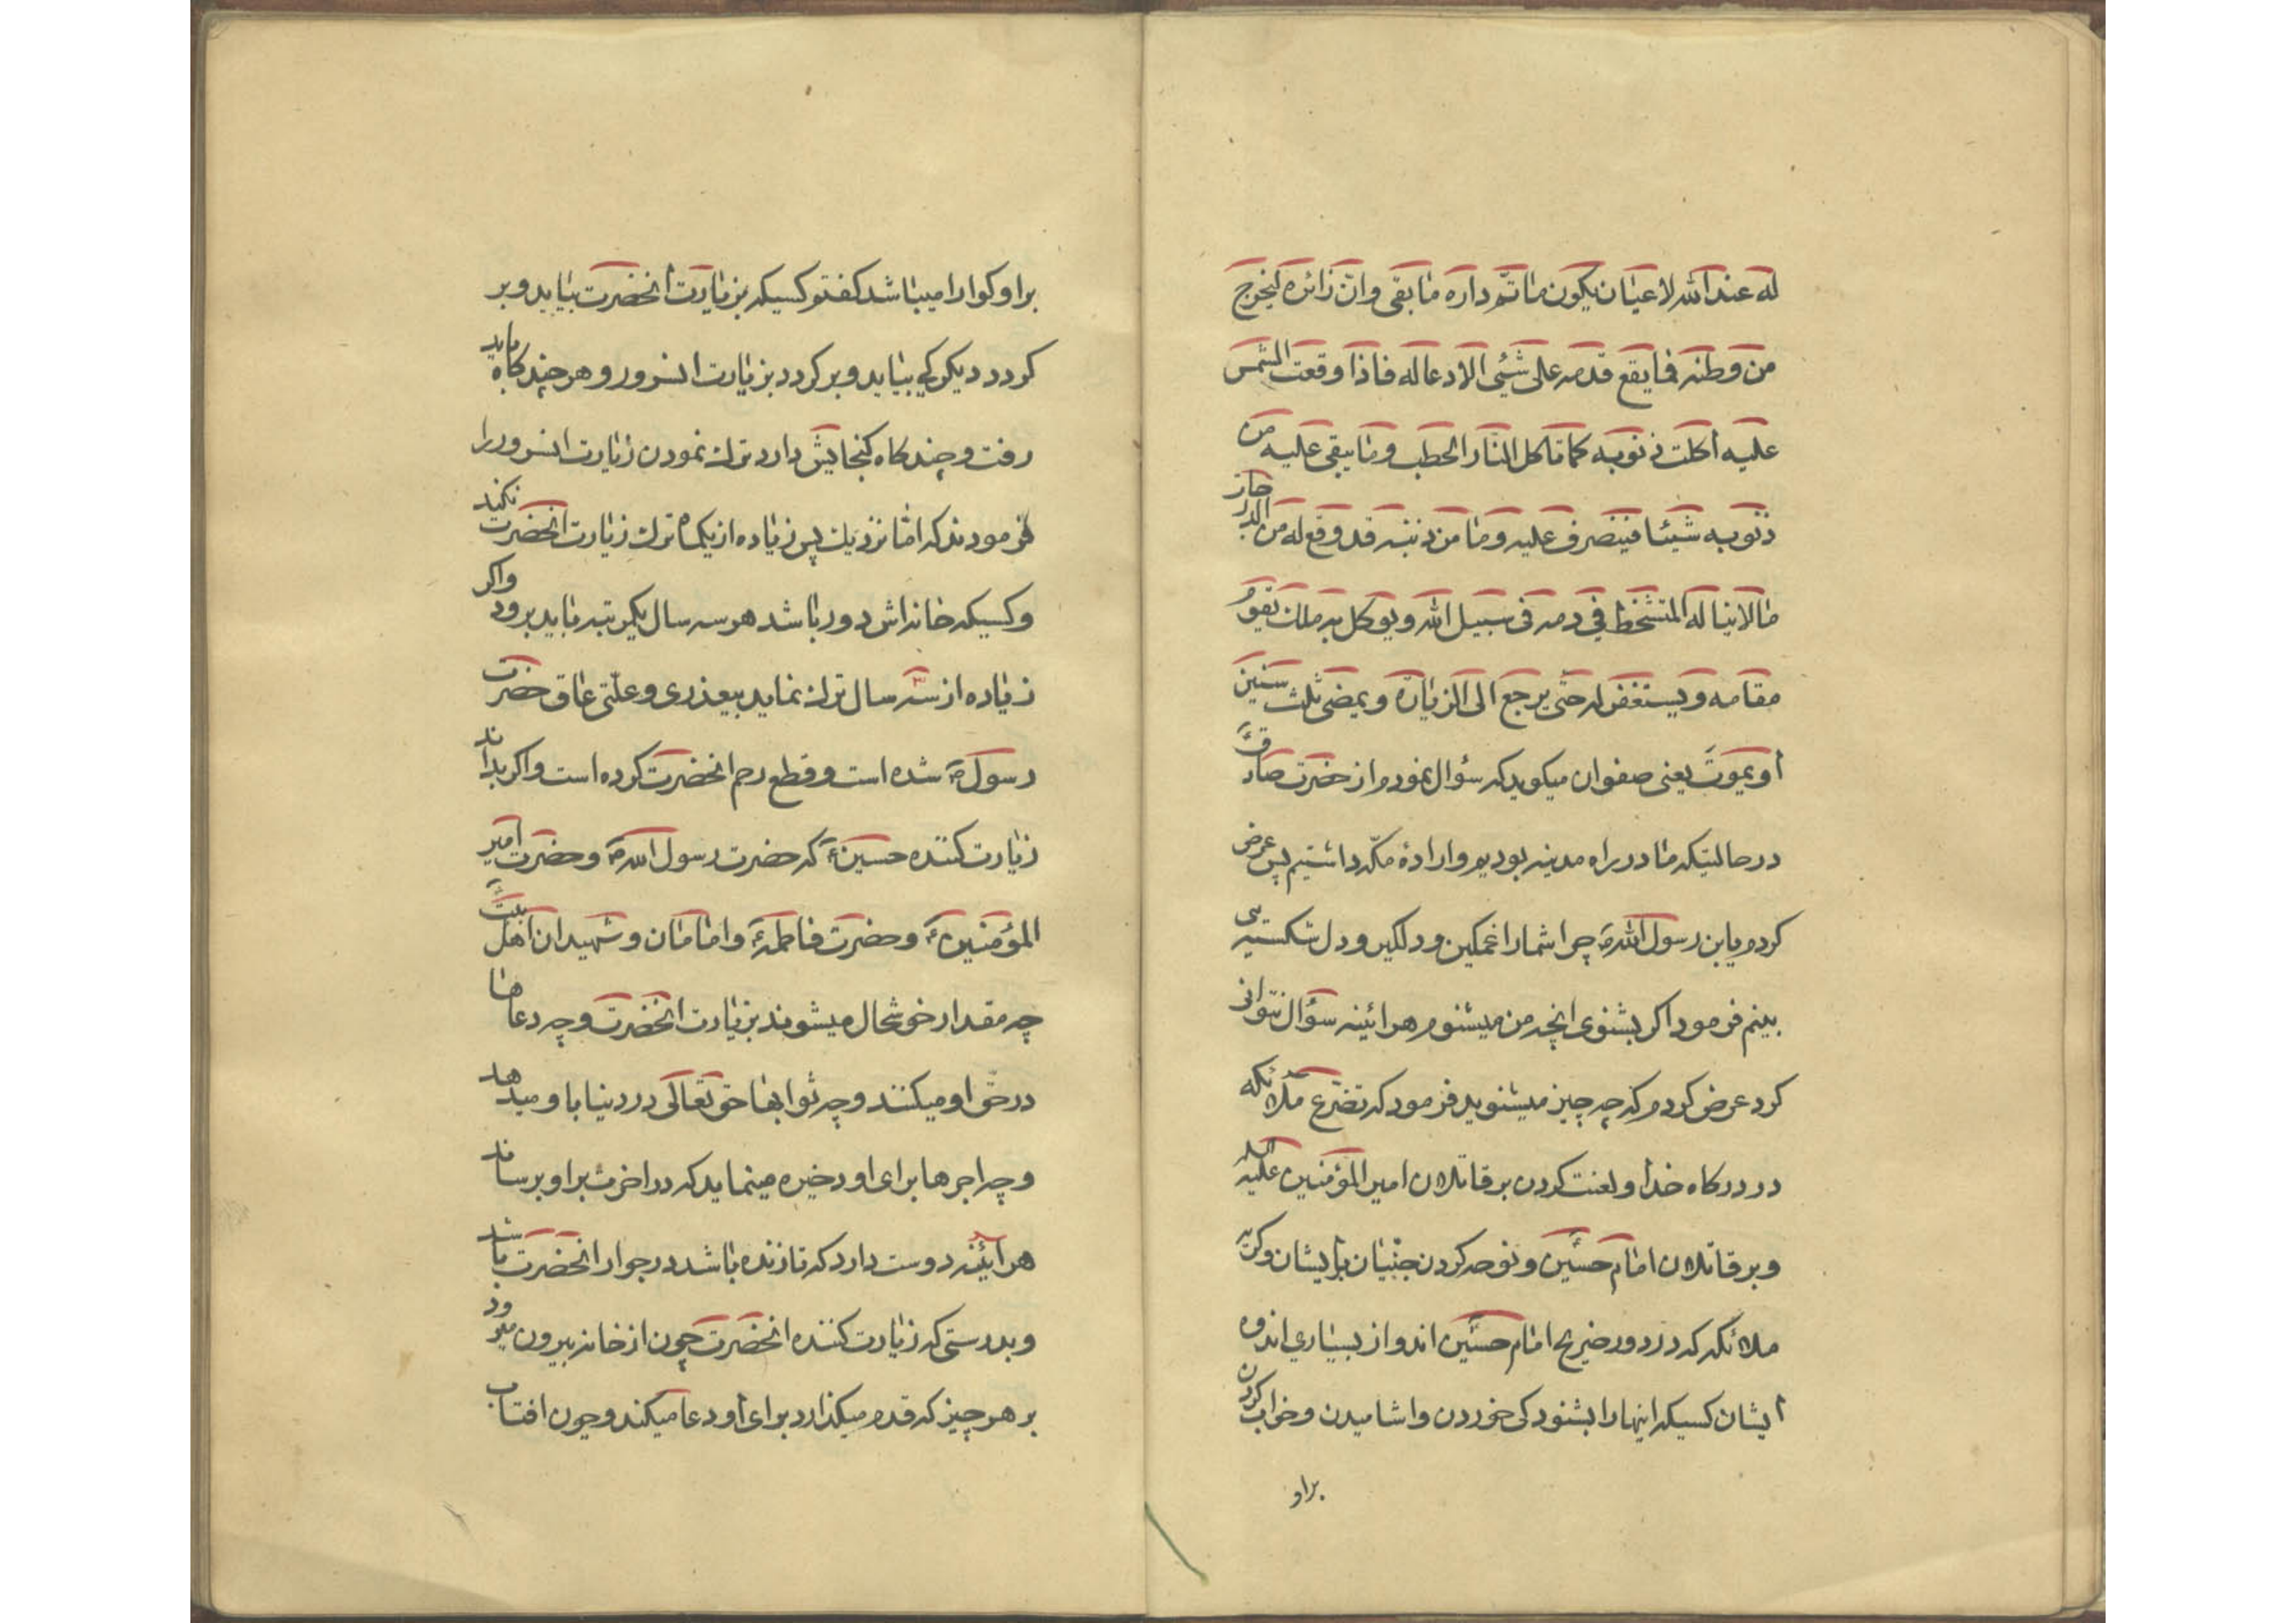 له عند الله لاعیان یکون ماتمّ داره مابقی وانّ زائره لیخرج
من وطنه فمایقع قدمه علی شیٔی الا دعا له فاذا وقعت الشمس
علیه اکلت ذنوبه کما تاکل النار الحطب و مایبقی علیه من
ذنوبه شیئا فینصرف علیه وما من ذنبه قد وقع له من الدرجات
مالا یناله المتشخط فی دمه فی سبیل الله و یوکل به ملك یقوم
مقامه و یستغفر له حتی یرجع الی الزیارة و یمضی ثلث سنین
او یموت یعنی صفوان میکوید که سؤال نمودم از حضرت صادقؑ
در حالتیکه ما در راه مدینه بودیم وارادهٔ مکّه داشتیم پس عرض
کردم یابن رسول اللهؐ چرا شما را غمکین ودلکیر ودل شکسته می
بینم فرمود اکر بشنوی انچه من میشنوم هرائینه سؤال نتوانی
کرد عرض کردم که چه چیز میشنوید فرمود که تضرّع ملائکه
در درکاه خدا و لعنت کردن بر قاتلان امیر المؤمنین علیه السلام
و بر قاتلان امام حسینؑ و نوحه کردن جنّیان بایشان وکریه
ملائکه که در دور ضریح امام حسینؑ اند واز بسیاری اندوه
ایشان کسیکه اینها را بشنود کی خوردن واشامیدن وخواب کردن
براو
براو کوارا میباشد کفتم کسیکه بزیارت انحضرت بیاید و بر
کردد دیکر کی بیاید و بر کردد بزیارت انسرور و هر چند کاه باید
رفت و چند کاه کنجایش دارد ترك نمودن زیارت انسرور را
فرمودند که امّا نزدیك پس زیاده از یکماه ترك زیارت انحضرت نکند
و کسیکه خانه‌اش دور باشد هر سه سال یکمرتبه باید برود واکر
زیاده از سه سال ترك نماید بیعذری و علّتی عاق حضرت
رسولؐ شده است و قطع رحم انحضرت کرده است واکر بداند
زیارت کننده حسینؑ که حضرت رسول اللهؐ و حضرت امیر
المؤمنینؑ و حضرت فاطمهؑ و امامان و شهیدان اهل بیتؑ
چه مقدار خوشحال میشوند بزیارت انحضرت و چه دعاها
در حقّ او میکنند و چه ثوابها حق تعالی در دنیا باو میدهد
و چه اجرها برای او ذخیره مینماید که در اخرت براو برساند
هرائینه دوست دارد که تا زنده باشد در جوار انحضرت باشد
و بدرستی که زیارت کننده انحضرت چون از خانه بیرون میرود
بر هر چیز که قدم میکذارد برای او دعا میکند و چون افتاب